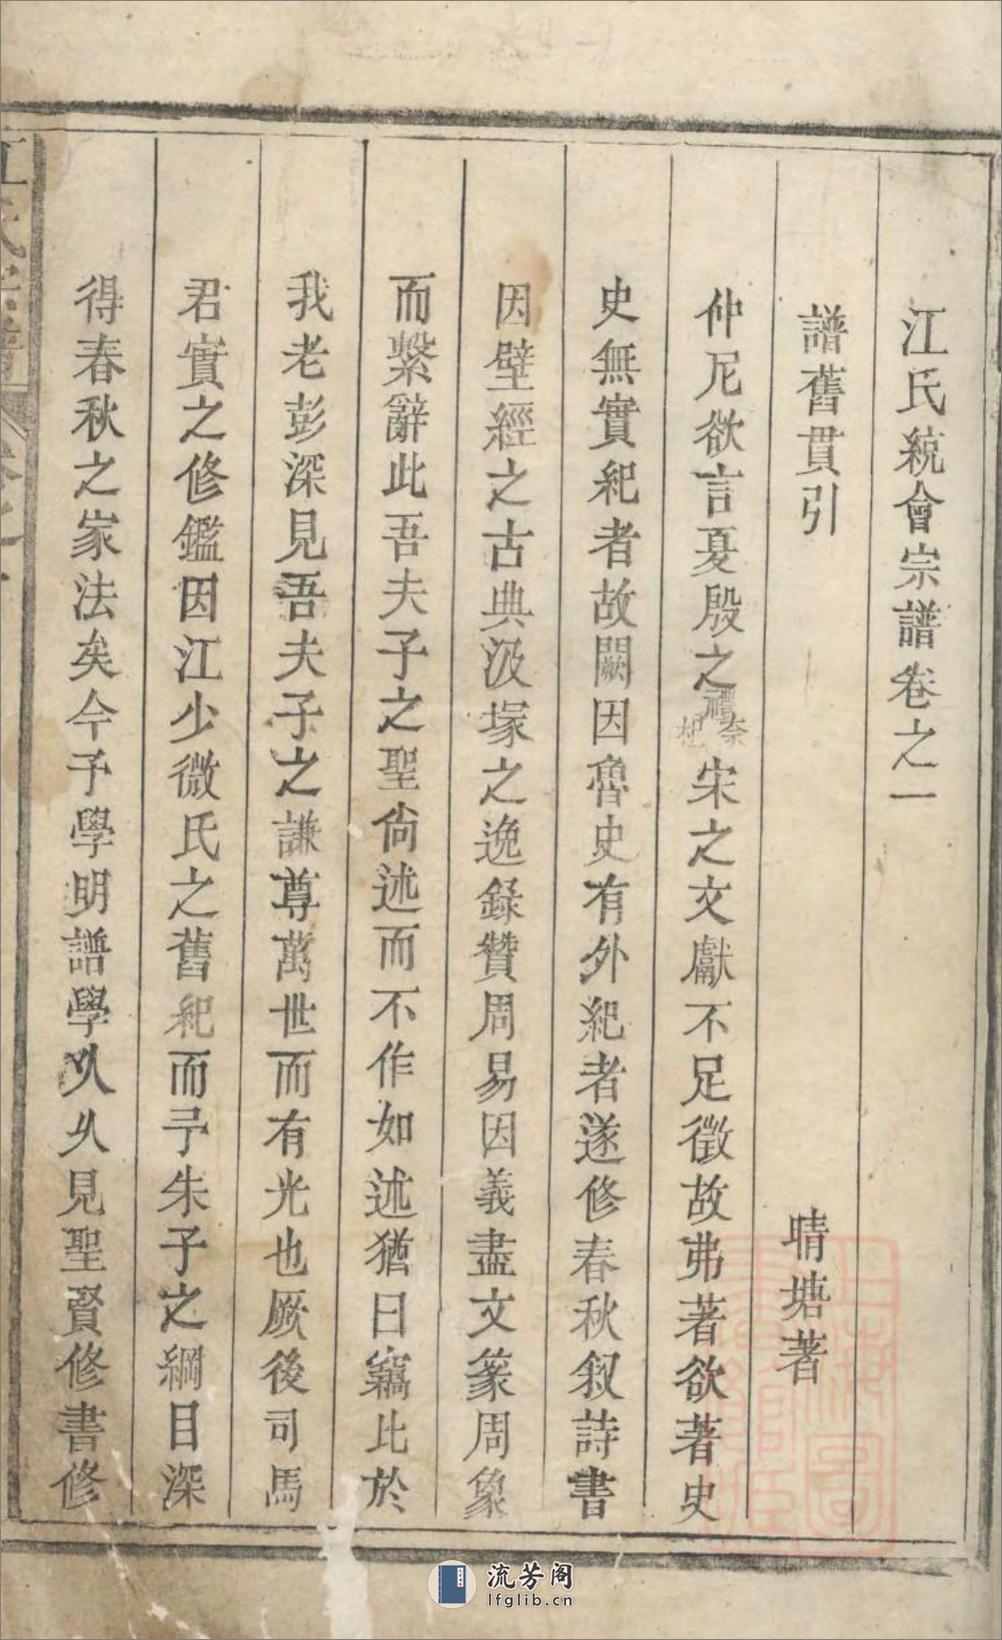 江氏統會宗譜卷之一
譜舊貫引
晴塘著
仲尼欲言夏殷之禮奈杞宋之文獻不足徵故弗著欲著史
史無實紀者故闕因魯史有外紀者遂修春秋叙詩書
因壁經之古典汲塚之逸錄贊周易因義盡文篆周象
而繫辭此吾夫子之聖尚述而不作如述猶曰竊比於
我老彭深見吾夫子之謙尊萬世而有光也厥後司馬
君實之修鑑因江少微氏之舊紀而子朱子之綱目深
得春秋之家法矣今予學明譜學久久見聖賢修書修
流芳阁
lfglib.cn